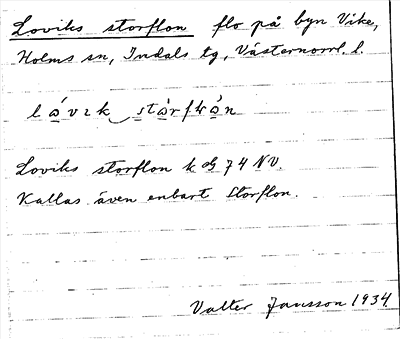 Loviks storflon flo på byn Vike,
Holms sn, Indals tg, Västernorrl. l.
Loviks storflon k bl 74 NV.
Kallas även enbart Storflon.
Valter Jansson 1934